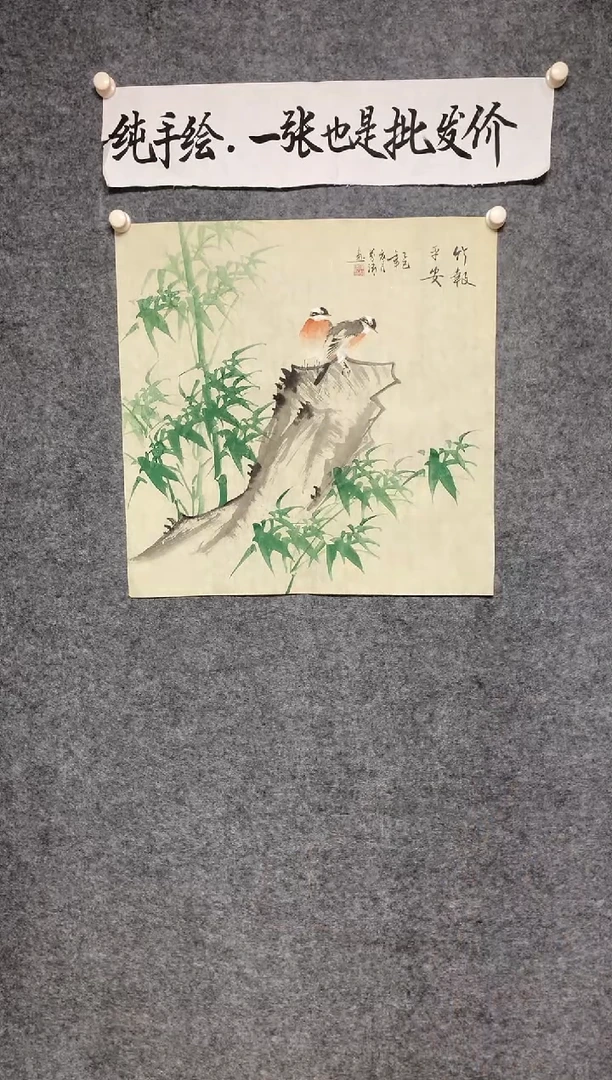 纯手绘.一张也是批发价
竹報
平安